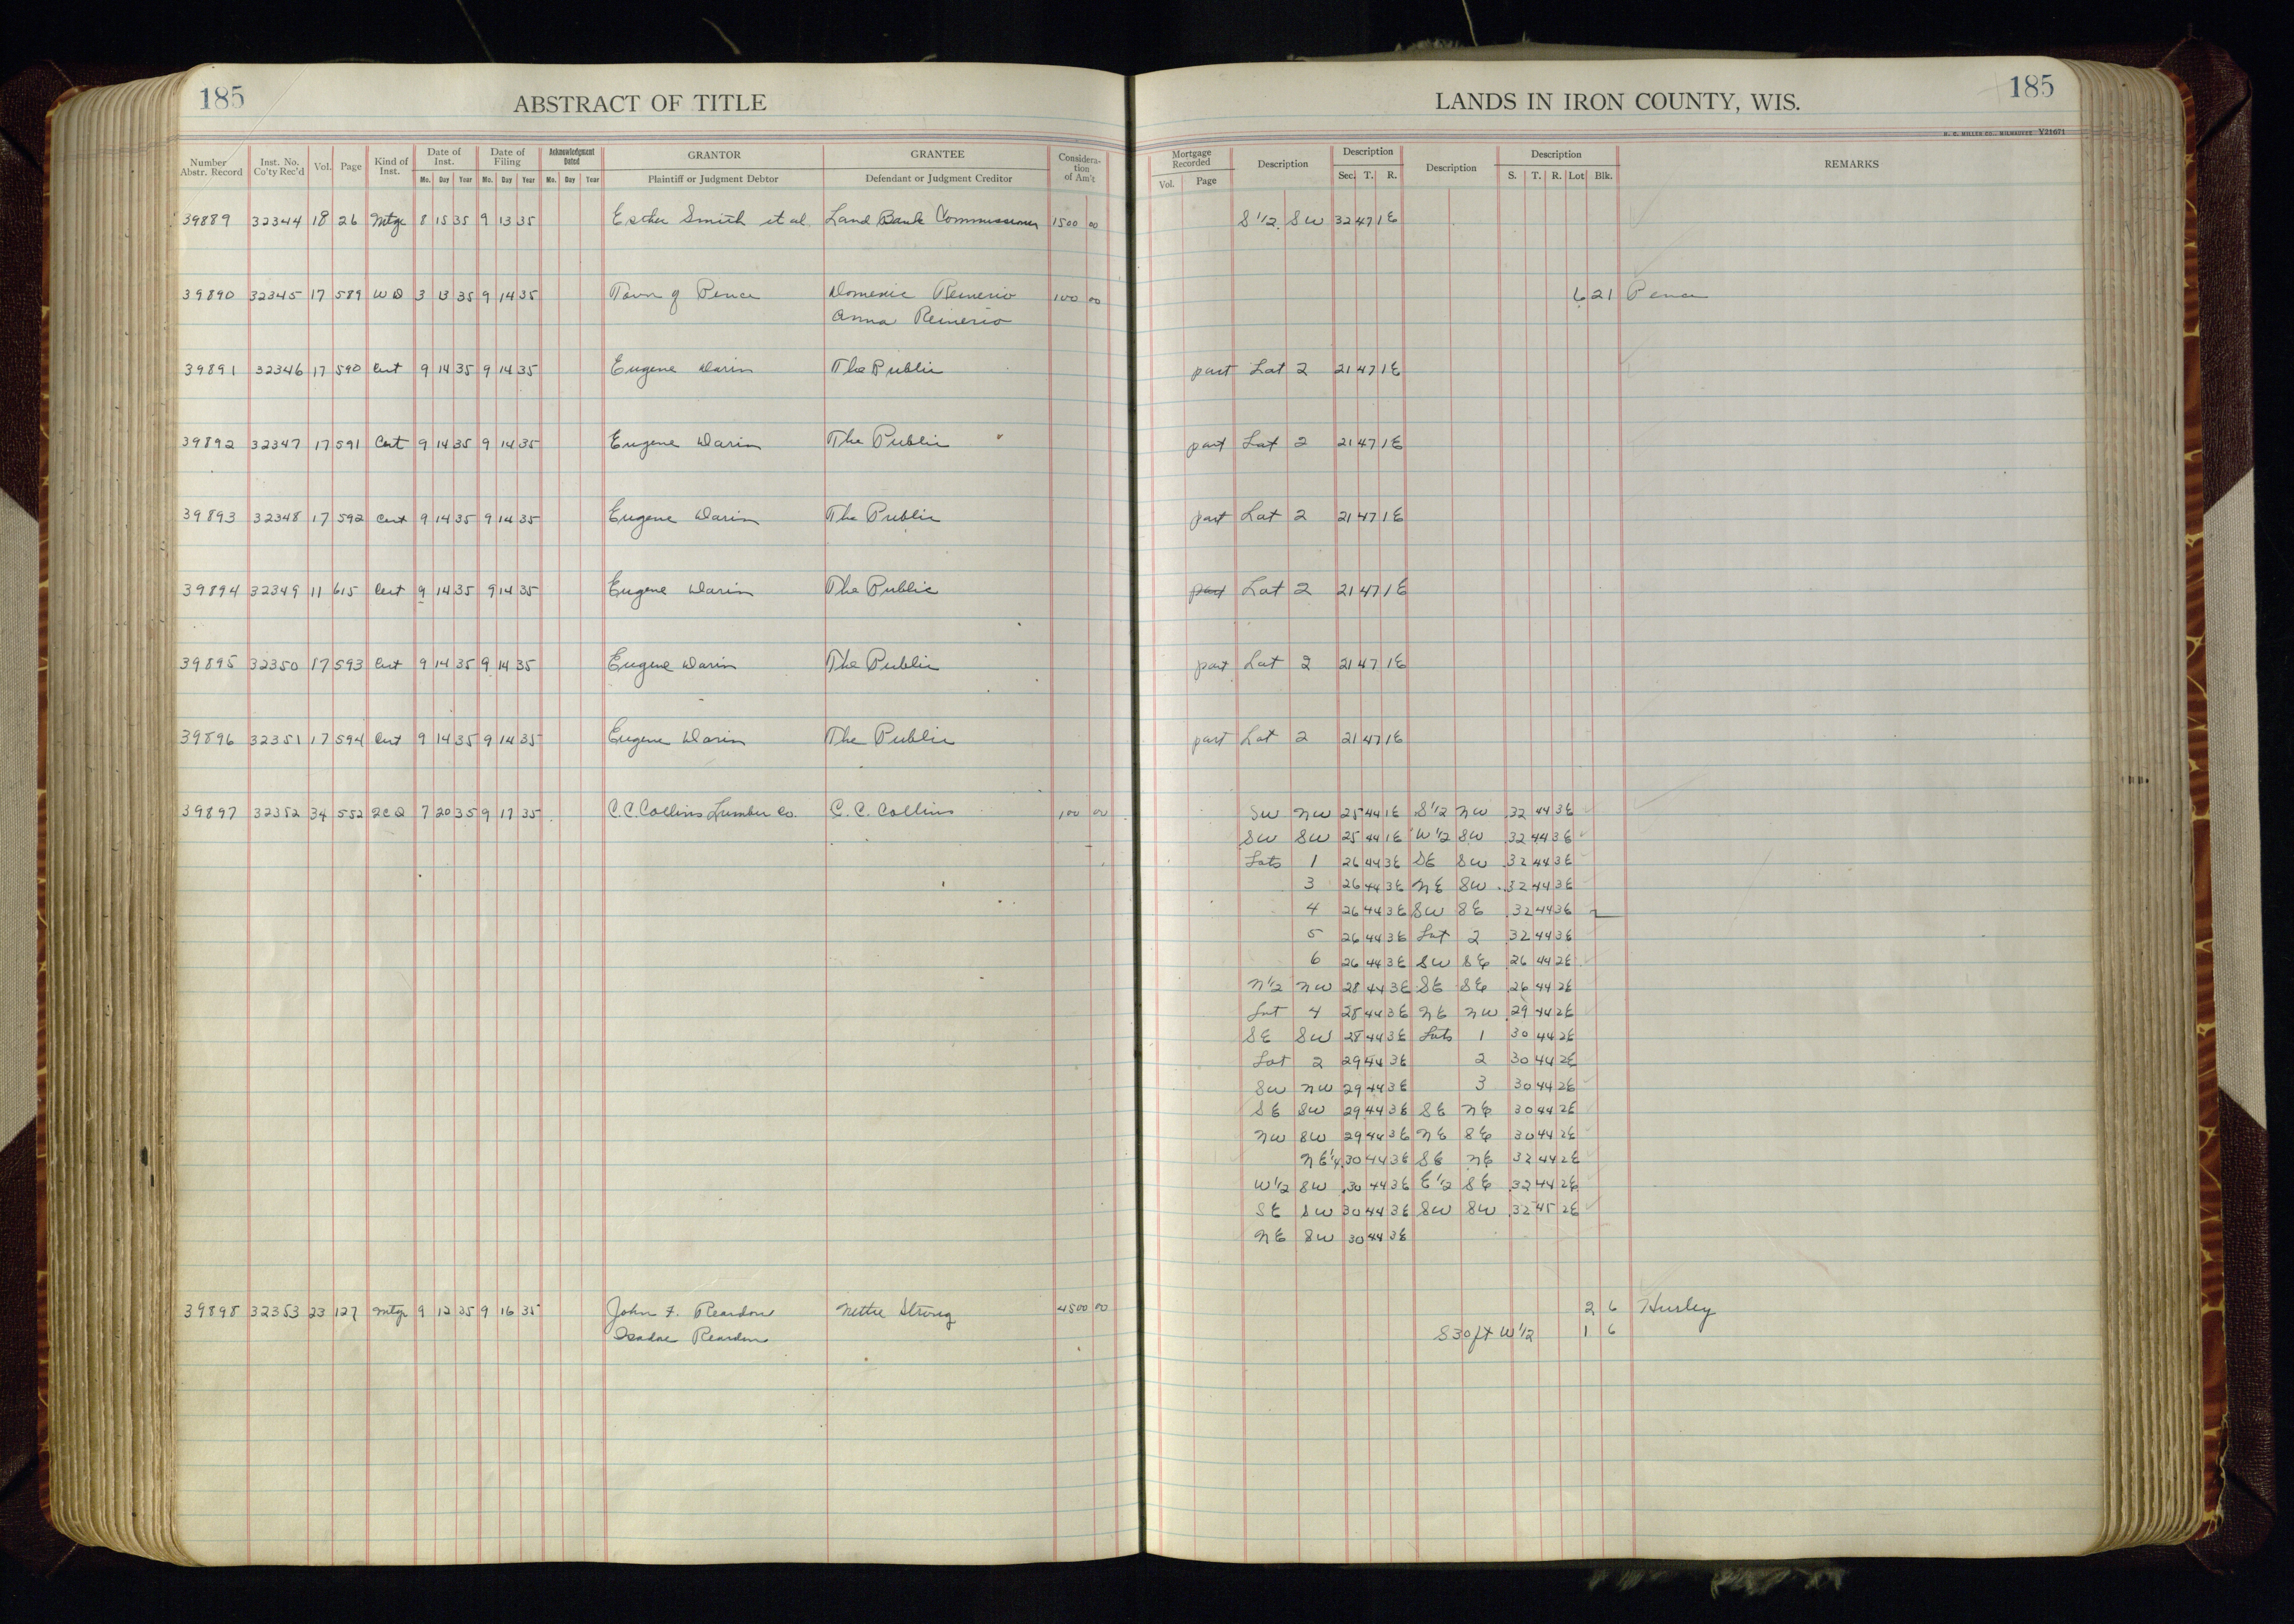 185
ABSTRACT OF TITLE
LANDS IN IRON COUNTY, WIS.
185
H. C. MILLER CO., MILWAUKEE V21671
Number Abstr. Record Inst. No. Co'ty Rec'd Vol. Page Kind of Inst. Date of Inst. Mo. Day Year Date of Filing Mo. Day Year Acknowledgment Dated Mo. Day Year GRANTOR Plaintiff or Judgment Debtor GRANTEE Defendant or Judgment Creditor Considera-tion of Am't
Mortgage Recorded Vol. Page Description Description Sec. T. R. Description Description S. T. R. Lot Blk. REMARKS
39889 32344 18 26 Mtge 8 15 35 9 13 35 Esther Smith et al Land Bank Commissioner 1500 00 S 1/2 SW 32 47 1E
39890 32345 17 589 WD 3 13 35 9 14 35 Town of Pence Domenic Reinerio 100 00 6 21 Pence
Anna Reinerio
39891 32346 17 590 Cert 9 14 35 9 14 35 Eugene Darin The Public part Lot 2 21 47 1E
39892 32347 17 591 Cert 9 14 35 9 14 35 Eugene Darin The Public part Lot 2 21 47 1E
39893 32348 17 592 Cert 9 14 35 9 14 35 Eugene Darin The Public part Lot 2 21 47 1E
39894 32349 11 615 Cert 9 14 35 9 14 35 Eugene Darin The Public part Lot 2 21 47 1E
39895 32350 17 593 Cert 9 14 35 9 14 35 Eugene Darin The Public part Lot 2 21 47 1E
39896 32351 17 594 Cert 9 14 35 9 14 35 Eugene Darin The Public part Lot 2 21 47 1E
39897 32352 34 552 2CD 7 20 35 9 17 35 C.C. Collins Lumber Co. C. C. Collins 100 00 SW NW 25 44 1E S 1/2 NW 32 44 3E
SW SW 25 44 1E W 1/2 SW 32 44 3E
Lots 1 26 44 3E SE SW 32 44 3E
3 26 44 3E NE SW 32 44 3E
4 26 44 3E SW SE 32 44 3E
5 26 44 3E Lot 2 32 44 3E
6 26 44 3E SW SE 26 44 2E
N 1/2 NW 28 44 3E SE SE 26 44 2E
Lot 4 28 44 3E NE NW 29 44 2E
SE SW 28 44 3E Lots 1 30 44 2E
Lot 2 29 44 3E 2 30 44 2E
SW NW 29 44 3E 3 30 44 2E
SE SW 29 44 3E SE NE 30 44 2E
NW SW 29 44 3E NE SE 30 44 2E
NE 1/4 30 44 3E SE NE 32 44 2E
W 1/2 SW 30 44 3E E 1/2 SE 32 44 2E
SE SW 30 44 3E SW SW 32 45 2E
NE SW 30 44 3E
39898 32353 23 127 Mtge 9 12 35 9 16 35 John F. Reardon Nettie Strong 4500 00 2 6 Hurley
Isadae Reardon S 30 ft W 1/2 1 6